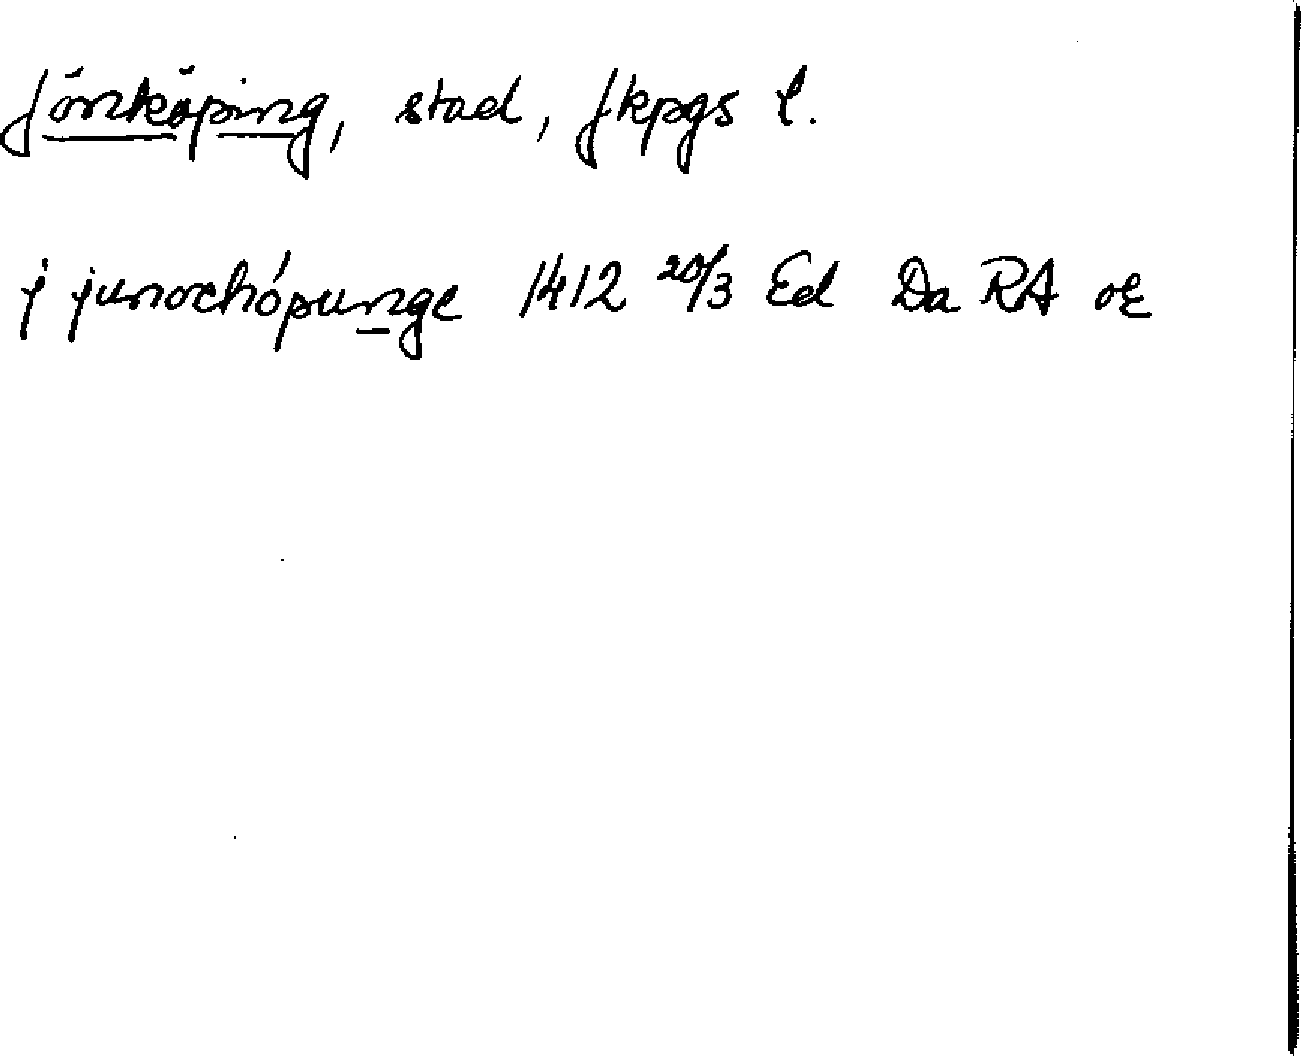 Jönköping, stad, Jkpgs l.
j junochópunge 1412 20/3 Ed Da RA oE